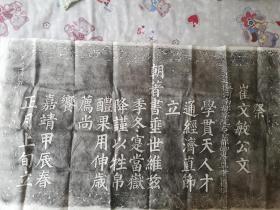 祭
崔文敏公文
學貫天人才
通經濟直節
立
朝著書垂世維茲
季冬寔當嶽
降謹以牲帛
醴果用伸歲
薦尚
饗
嘉靖甲辰春
正月上旬立